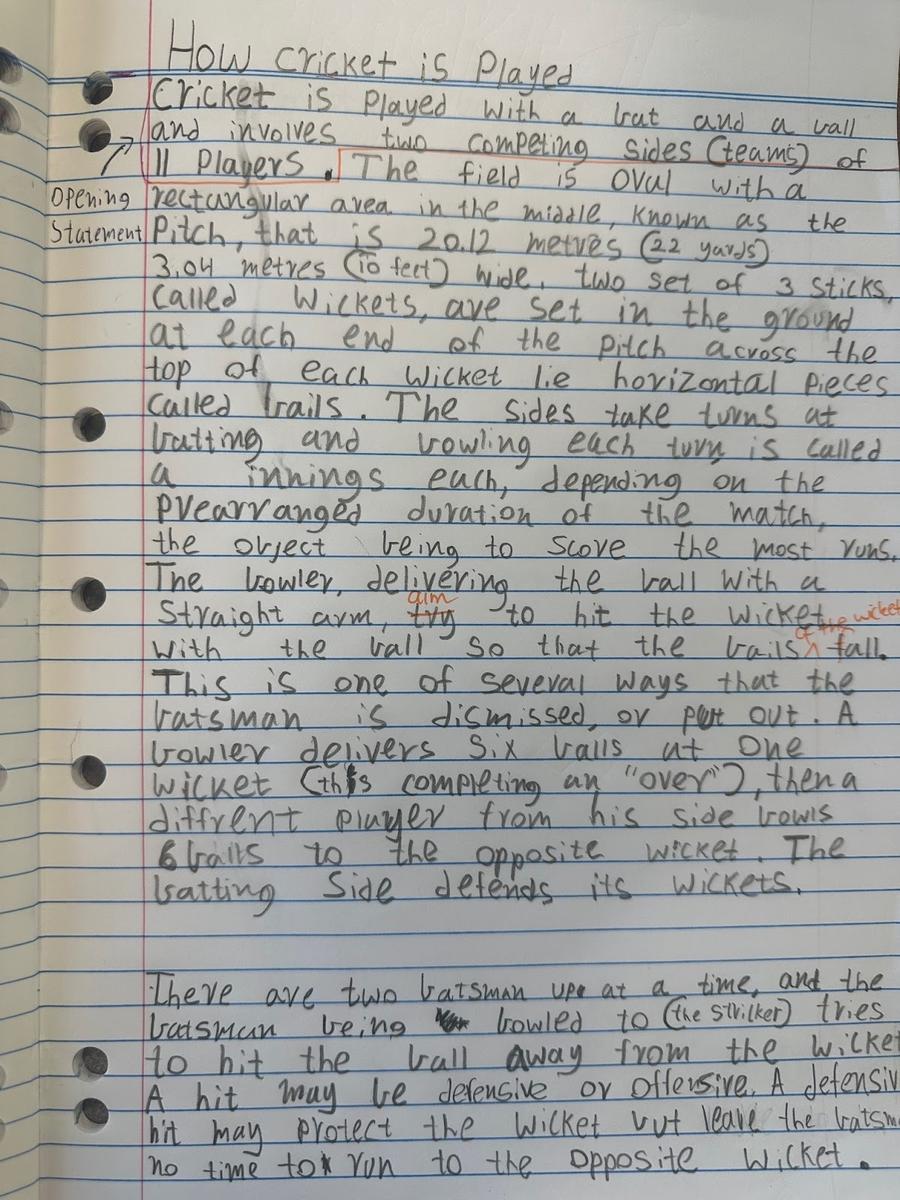 How Cricket is Played
Cricket is Played with a bat and a ball
and involves two competing sides (teams) of
11 Players. The field is oval with a
Opening rectangular area in the middle, known as the
Statement Pitch, that is 20.12 metres (22 yards)
3.04 metres (10 feet) wide. two set of 3 sticks,
Called Wickets, are set in the ground
at each end of the Pitch across the
top of each Wicket lie horizontal Pieces
Called bails. The sides take turns at
batting and bowling each turn is called
a innings each, depending on the
Prearranged duration of the match,
the object being to score the most runs.
The bowler, delivering the ball with a
aim
Straight arm, try to hit the wicket
of the wicket
with the ball so that the bails ^ fall.
This is one of several ways that the
batsman is dismissed, or put out. A
bowler delivers six balls at one
wicket (this completing an "over"), then a
diffrent player from his side bowls
6 balls to the opposite wicket. The
batting Side defends its Wickets.
There are two batsman up at a time, and the
batsman being bowled to (the striker) tries
to hit the ball away from the wicket
A hit may be defensive or offensive. A defensiv
hit may protect the wicket but leave the batsm
no time to run to the opposite wicket.